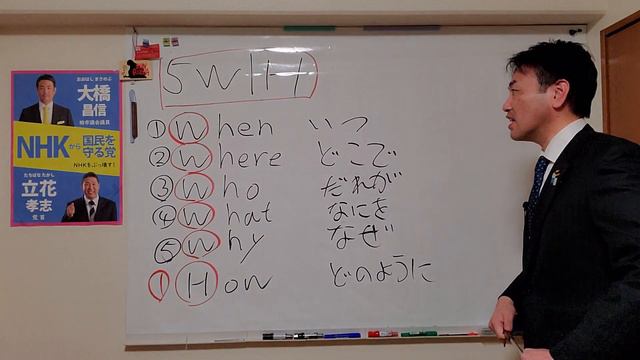 5W1H
① When いつ
② Where どこで
③ Who だれが
④ What なにを
⑤ Why なぜ
① How どのように
おおはし まさのぶ
大橋
昌信
柏市議会議員
NHKから国民を守る党
NHKをぶっ壊す!
たちばな たかし
立花
孝志
党首